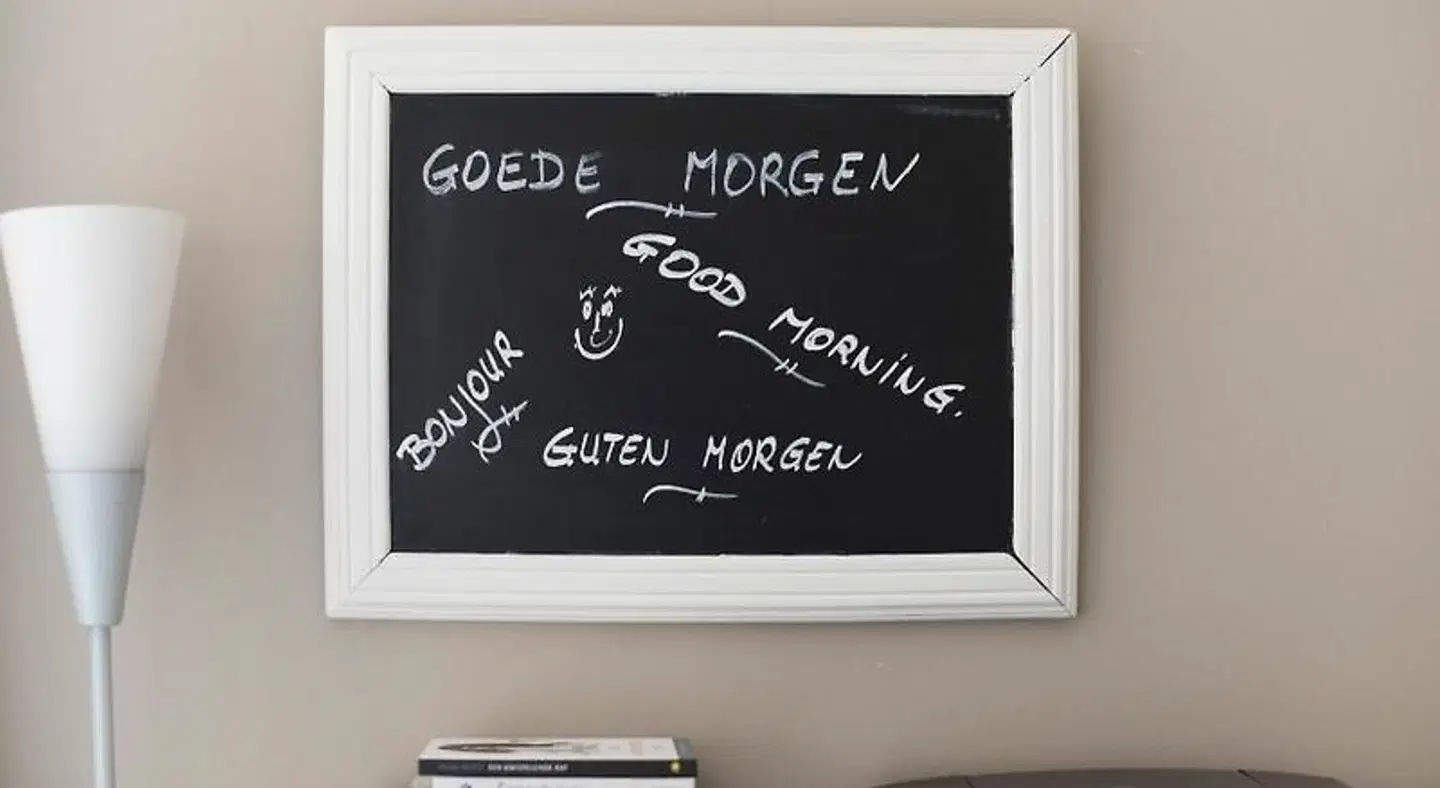 GOEDE MORGEN
GOOD MORNING.
BONJOUR
GUTEN MORGEN